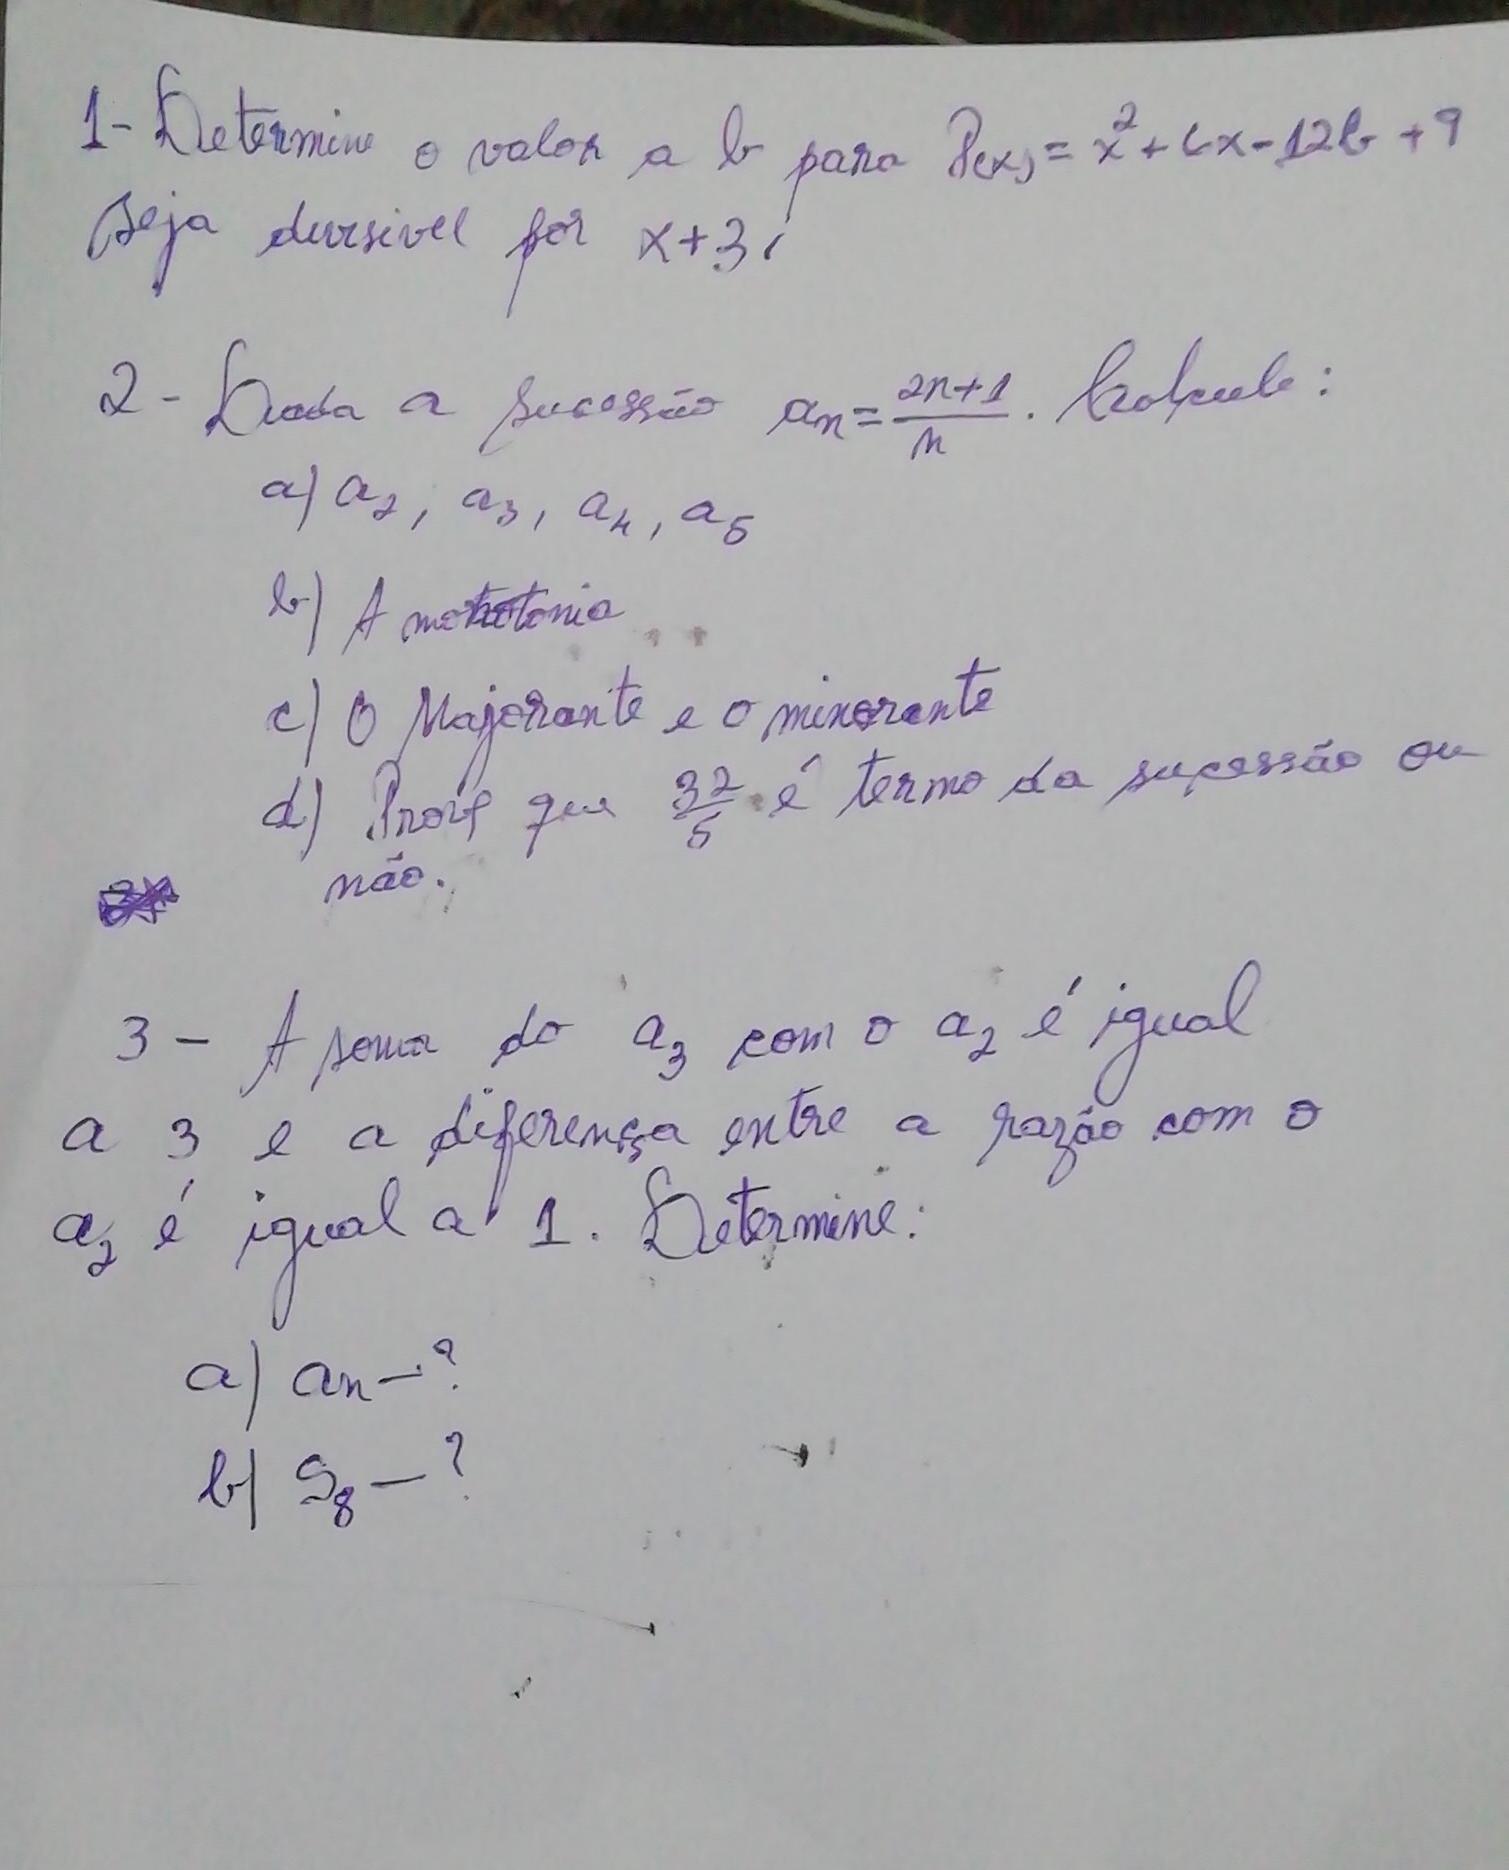 1- Determine o valor a b para P(x) = x² + 6x - 12b + 9
seja divisivel por x+3;
2 - Dada a sucessão an = 2n+1/n. Calcule:
a) a2, a3, a4, a5
b) A monotonia
c) O Majorante e o minorante
d) Prove que 32/5 é termo da sucessão ou
não.
3 - A soma do a3 com o a2 é igual
a 3 e a diferença entre a razão com o
a2 é igual a 1. Determine:
a) an - ?
b) S8 - ?